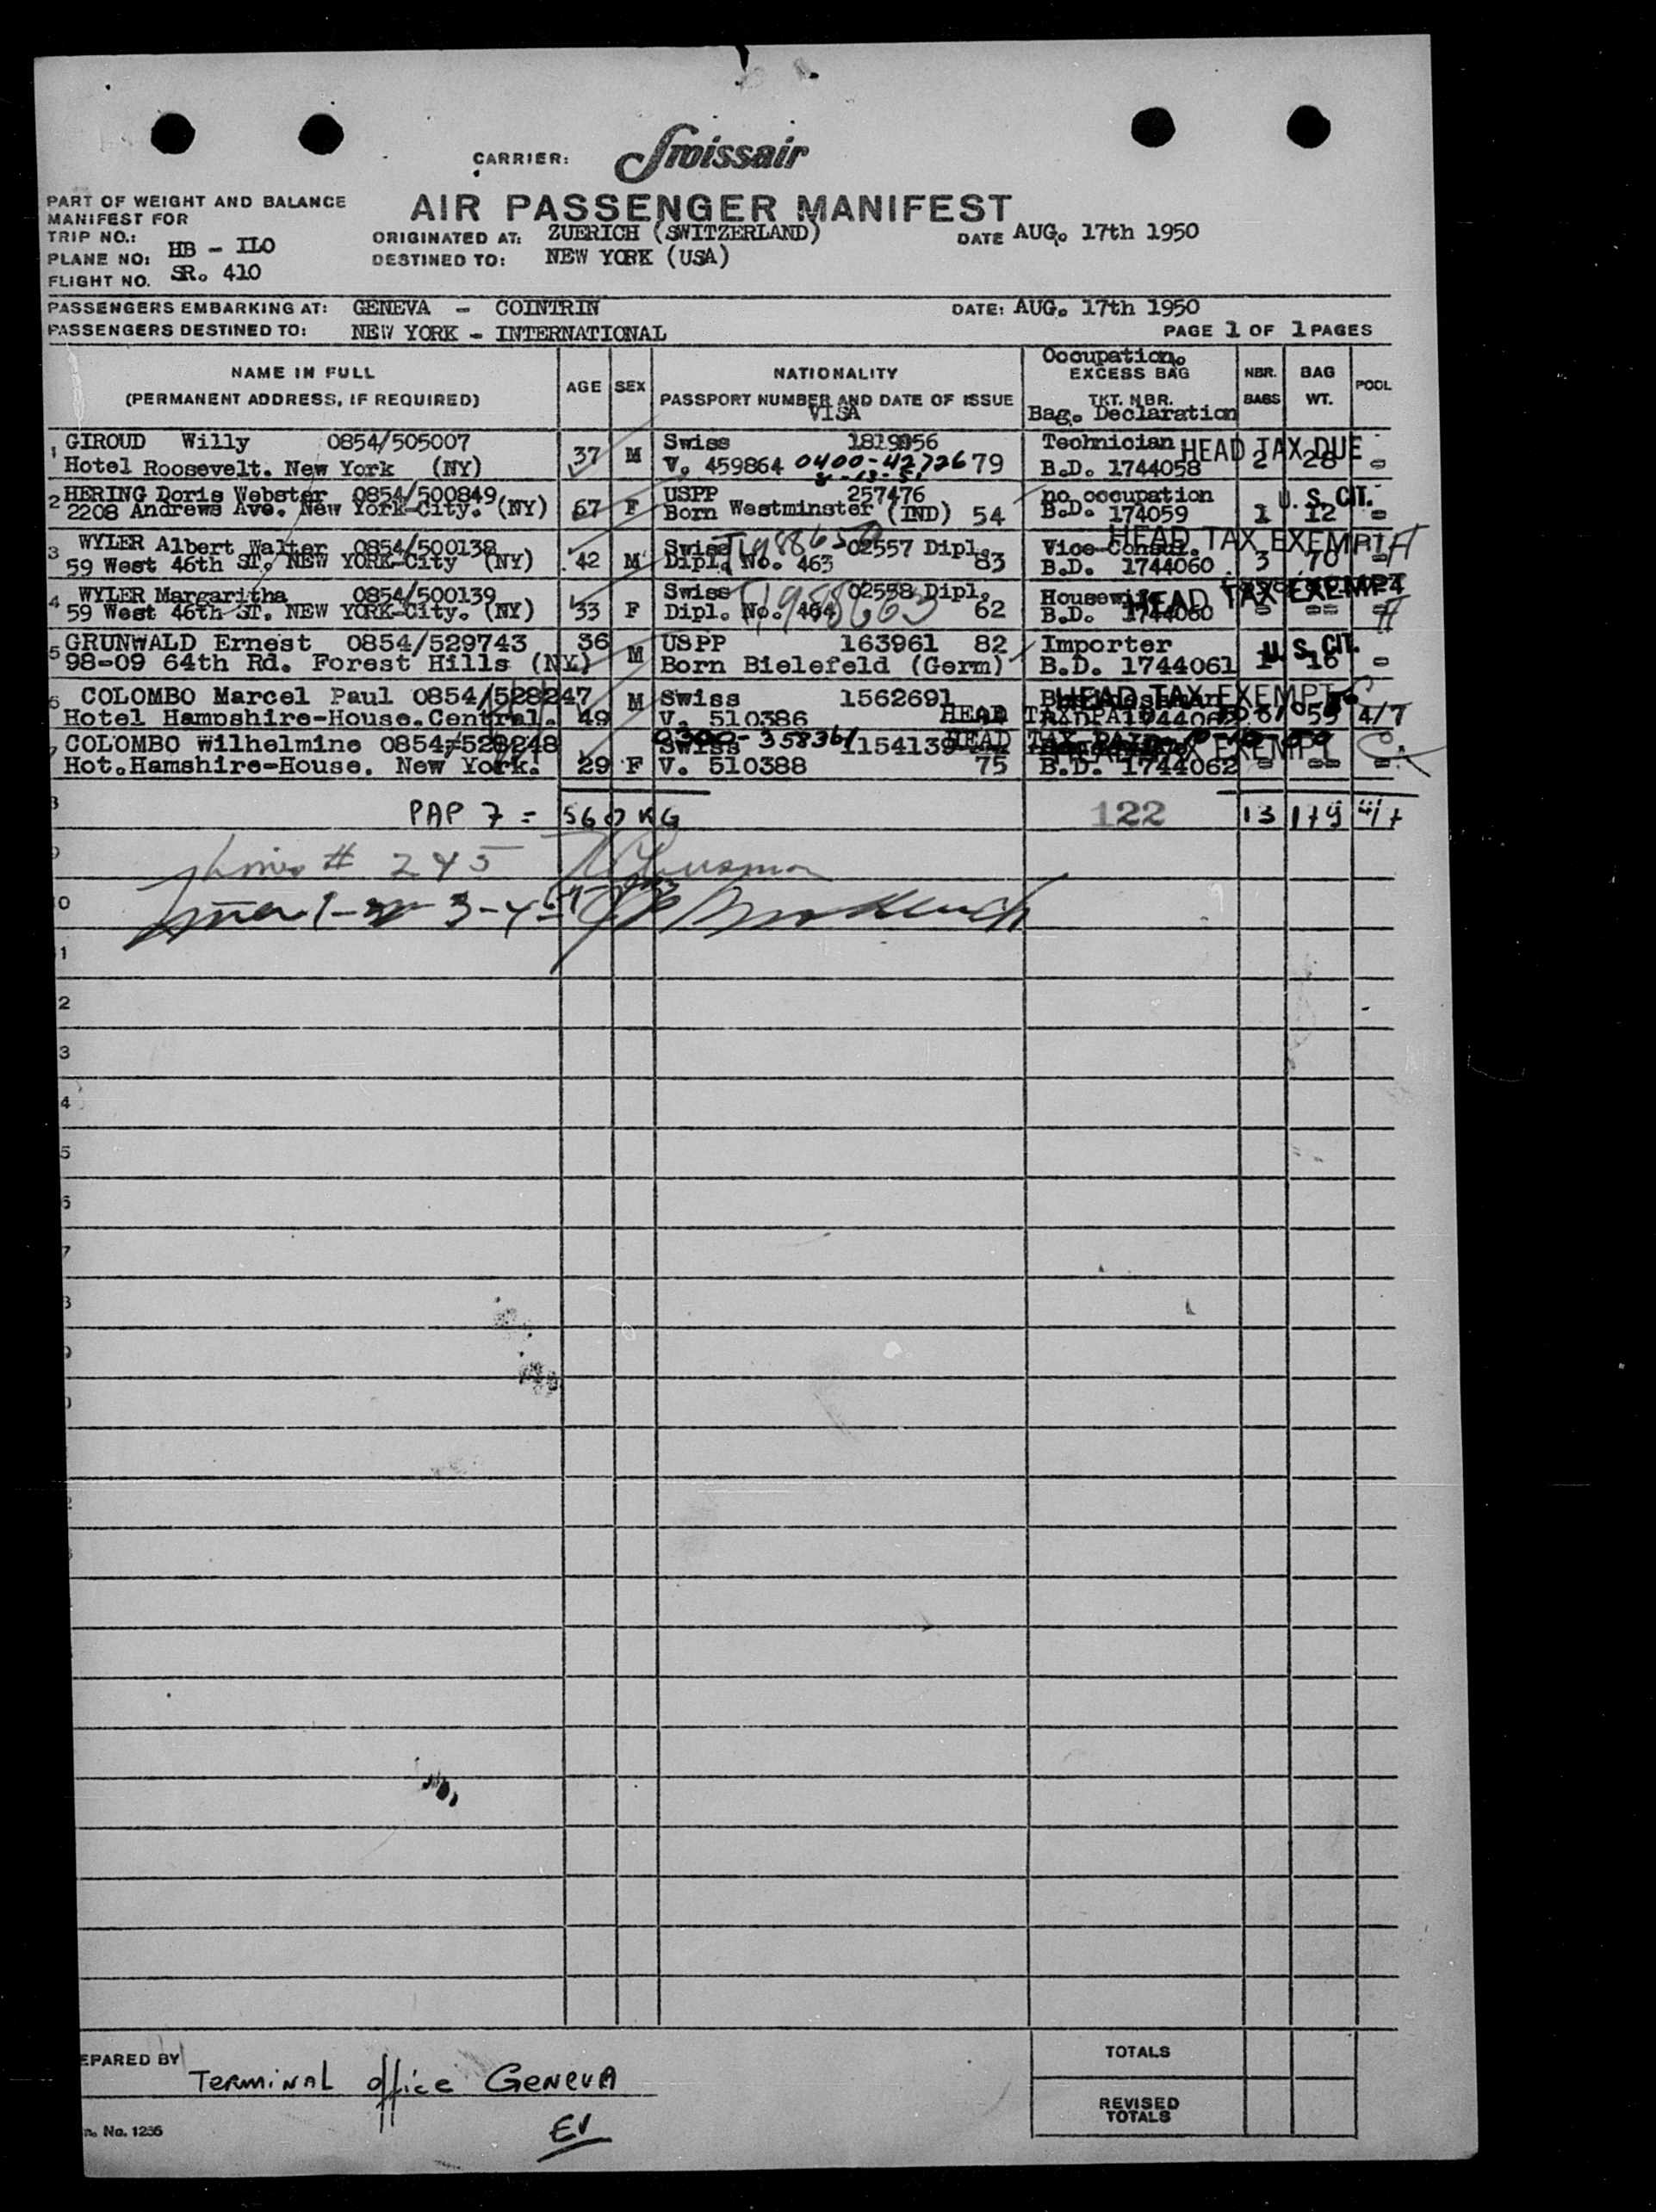 CARRIER: Swissair
PART OF WEIGHT AND BALANCE
MANIFEST FOR
AIR PASSENGER MANIFEST
TRIP NO.:
PLANE NO: HB - ILO
FLIGHT NO. SR. 410
ORIGINATED AT: ZUERICH (SWITZERLAND)
DATE AUG. 17th 1950
DESTINED TO: NEW YORK (USA)
PASSENGERS EMBARKING AT: GENEVA - COINTRIN
DATE: AUG. 17th 1950
PASSENGERS DESTINED TO: NEW YORK - INTERNATIONAL
PAGE 1 OF 1 PAGES
NAME IN FULL
(PERMANENT ADDRESS, IF REQUIRED)
AGE
SEX
NATIONALITY
PASSPORT NUMBER AND DATE OF ISSUE
VISA
Occupation.
EXCESS BAG
TKT. NBR.
Bag. Declaration
NBR.
BAGS
BAG
WT.
POOL
1 GIROUD Willy 0854/505007 37 M Swiss Technician HEAD TAX DUE
Hotel Roosevelt. New York (NY) V. 459864 0400-42726 79 B.D. 1744058 2 28 -
2 HERING Doris Webster 0854/500849 67 F USPP 257476 no occupation U. S. CIT.
2208 Andrews Ave. New York-City. (NY) Born Westminster (IND) 54 B.D. 174059 1 12 -
3 WYLER Albert Walter 0854/500138 42 M Swiss 02557 Dipl. Vice-Consul. HEAD TAX EXEMPT
59 West 46th ST. NEW YORK-City (NY) Dipl. No. 463 83 B.D. 1744060 3 70 -
4 WYLER Margaritha 0854/500139 33 F Swiss 02558 Dipl. Housewife HEAD TAX EXEMPT
59 West 46th ST. NEW YORK-City. (NY) Dipl. No. 464 62 B.D. 1744060 - -- -
5 GRUNWALD Ernest 0854/529743 36 M USPP 163961 82 Importer U. S. CIT.
98-09 64th Rd. Forest Hills (NY) Born Bielefeld (Germ) B.D. 1744061 1 16 -
6 COLOMBO Marcel Paul 0854/528247 49 M Swiss 1562691 HEAD TAX EXEMPT
Hotel Hampshire-House. Central. V. 510386 HEAD TAX PAID 6 53 4/7
7 COLOMBO Wilhelmine 0854/528248 29 F Swiss 1154139 HEAD TAX PAID
0300-358361 TAX EXEMPT
Hot. Hamshire-House. New York. V. 510388 75 B.D. 1744062 - -- -
PAP 7 = 560 KG 122 13 179 4/7
# 245
PREPARED BY
TERMINAL office GENEVA
EV
No. 1256
TOTALS
REVISED
TOTALS